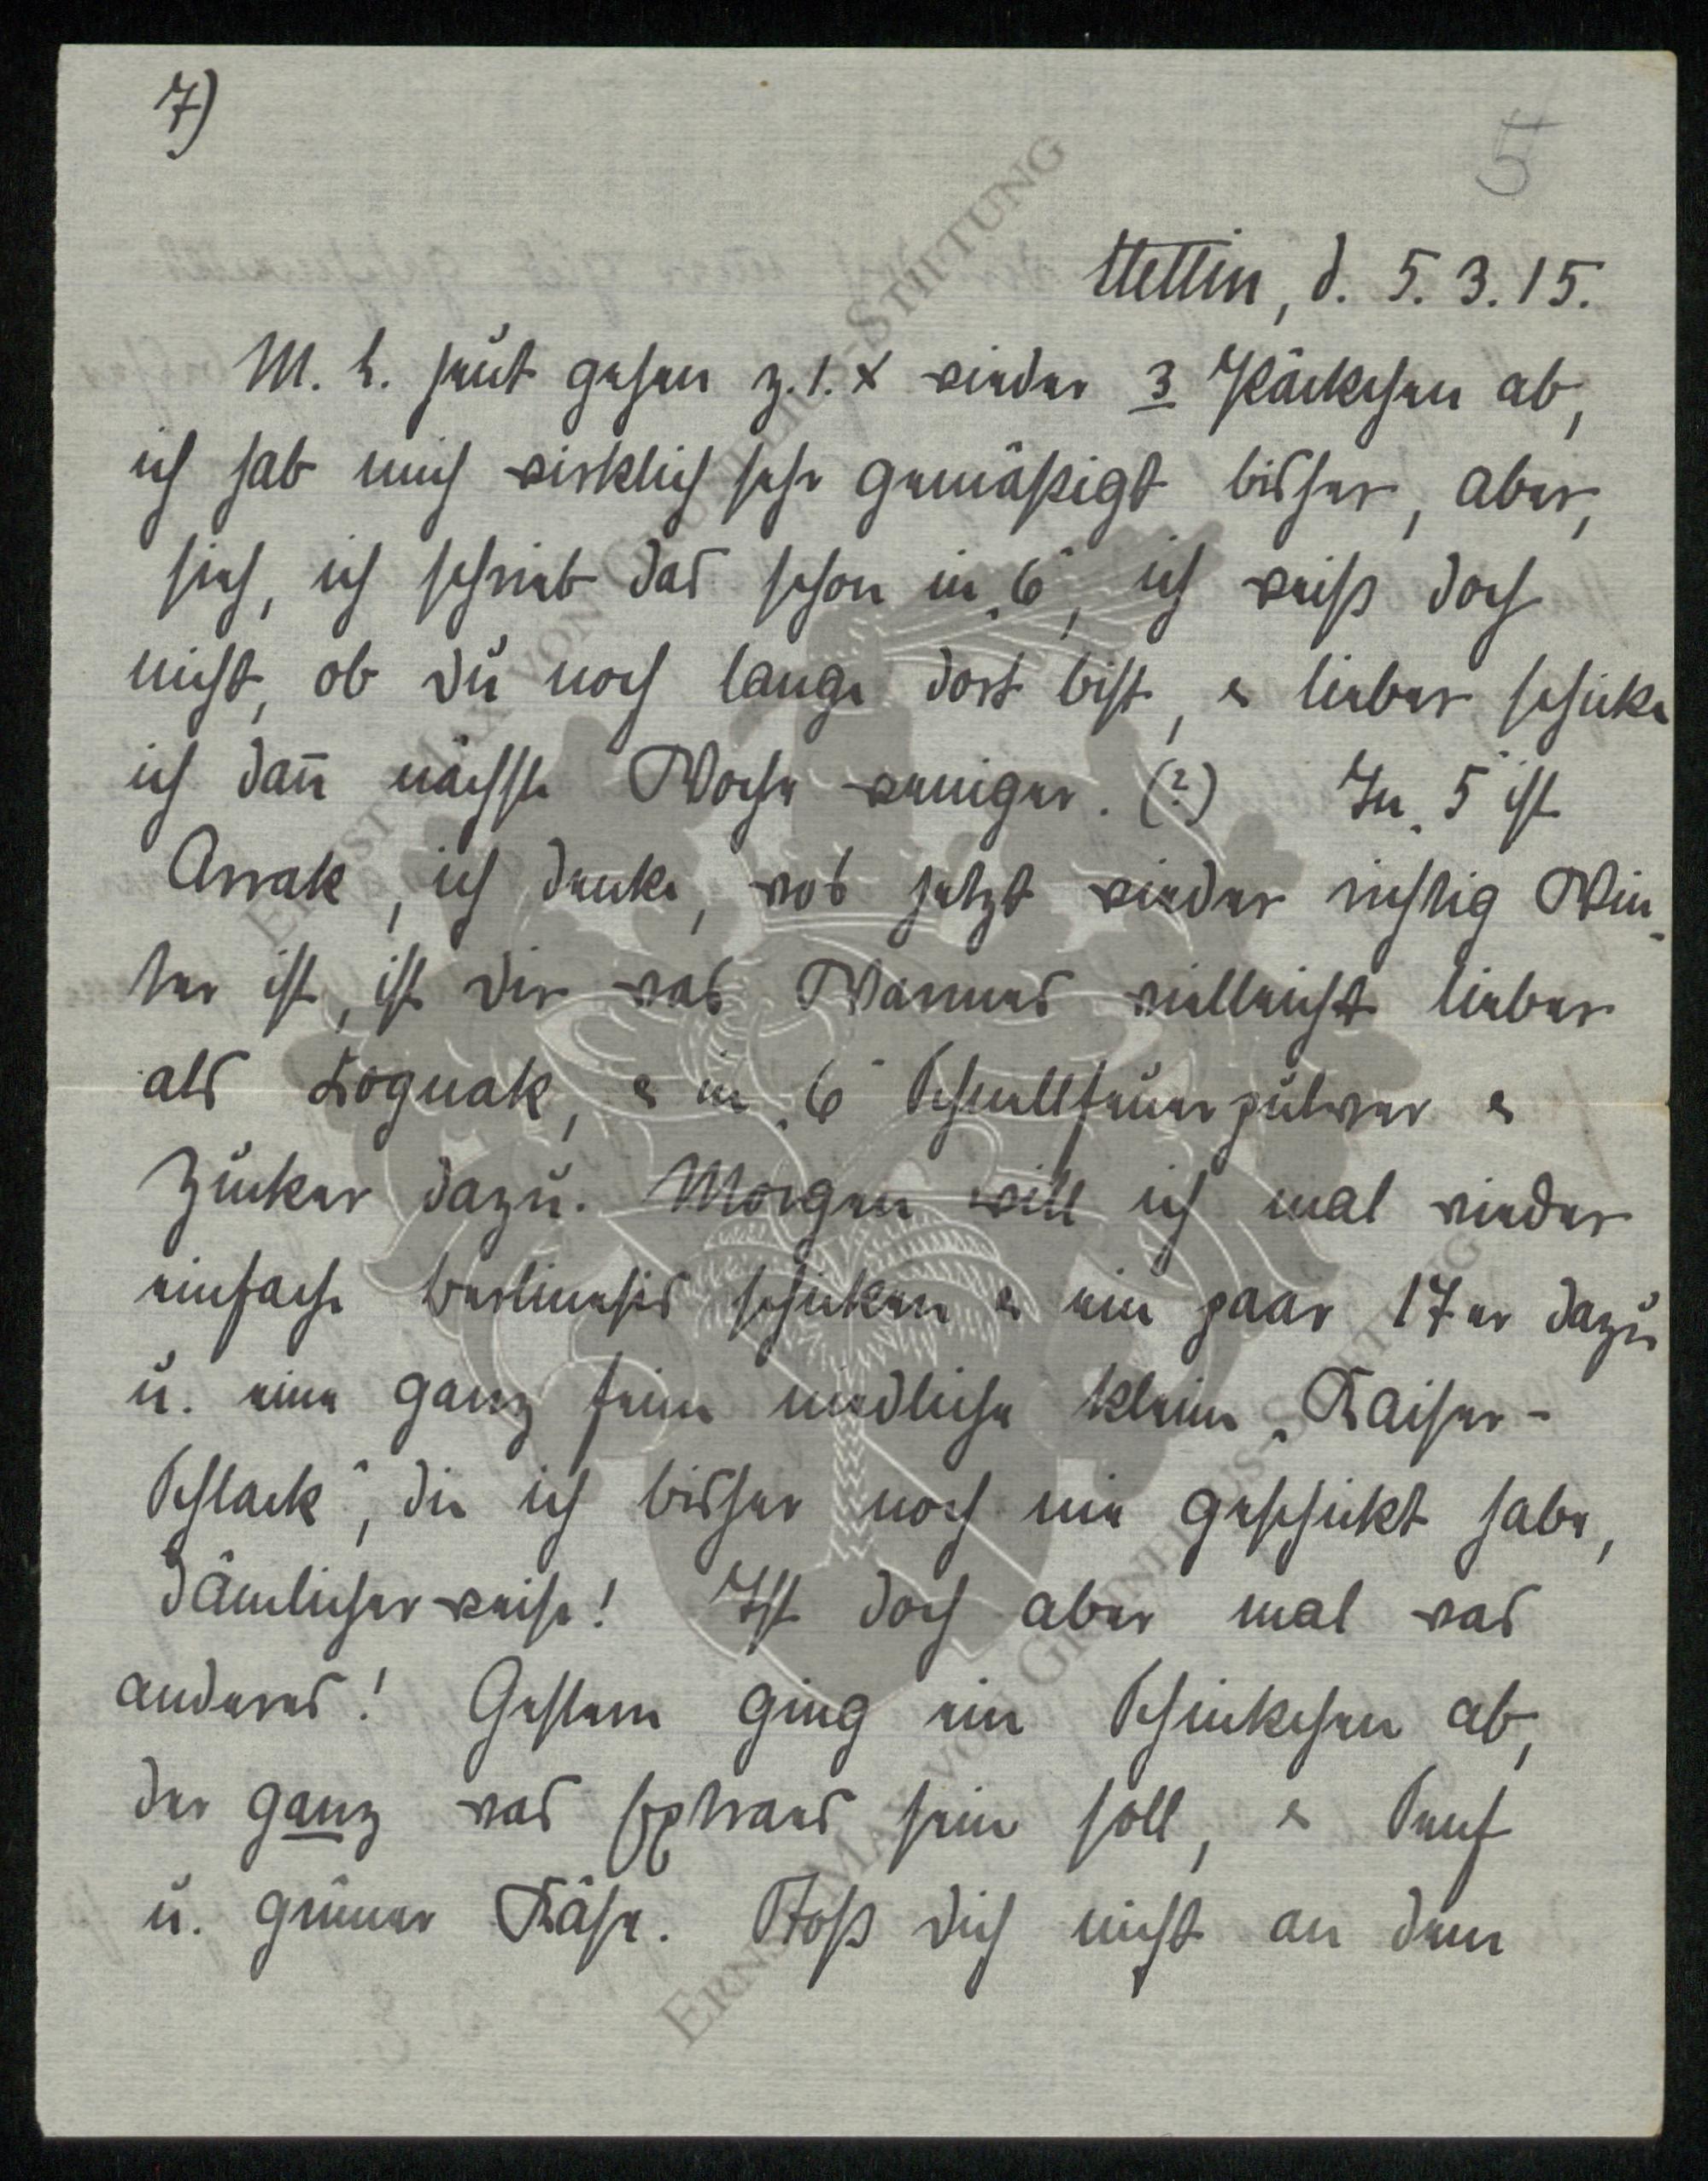 7)
5
Stettin, d. 5.3.15.
M. L. heut gehen z. 1. x wieder 3 Päckchen ab,
ich hab mich wirklich sehr gemäßigt bisher, aber,
sieh, ich schrieb das schon in „6“, ich weiß doch
nicht, ob du noch lange dort bist, & lieber schicke
ich dan̄ nächste Woche weniger. (?) In „5“ ist
Arrak, ich denke, wo's jetzt wieder richtig Win-
ter ist, ist dir was Warmes vielleicht lieber
als Kognak, & in „6“ Schnellfeuerpulver &
Zucker dazu. Morgen will ich mal wieder
einfache berlinesis schicken & ein paar 17er dazu
u. eine ganz feine niedliche kleine „Kaiser-
Schlack“, die ich bisher noch nie geschickt habe,
dämlicherweise! Ist doch aber mal was
anderes! Gestern ging ein Schinkchen ab,
der ganz was extraes sein soll, & Senf
u. grüner Käse. Stoß dich nicht an dem
ERNST MAX VON GRUNELIUS-STIFTUNG
ERNST MAX VON GRUNELIUS-STIFTUNG